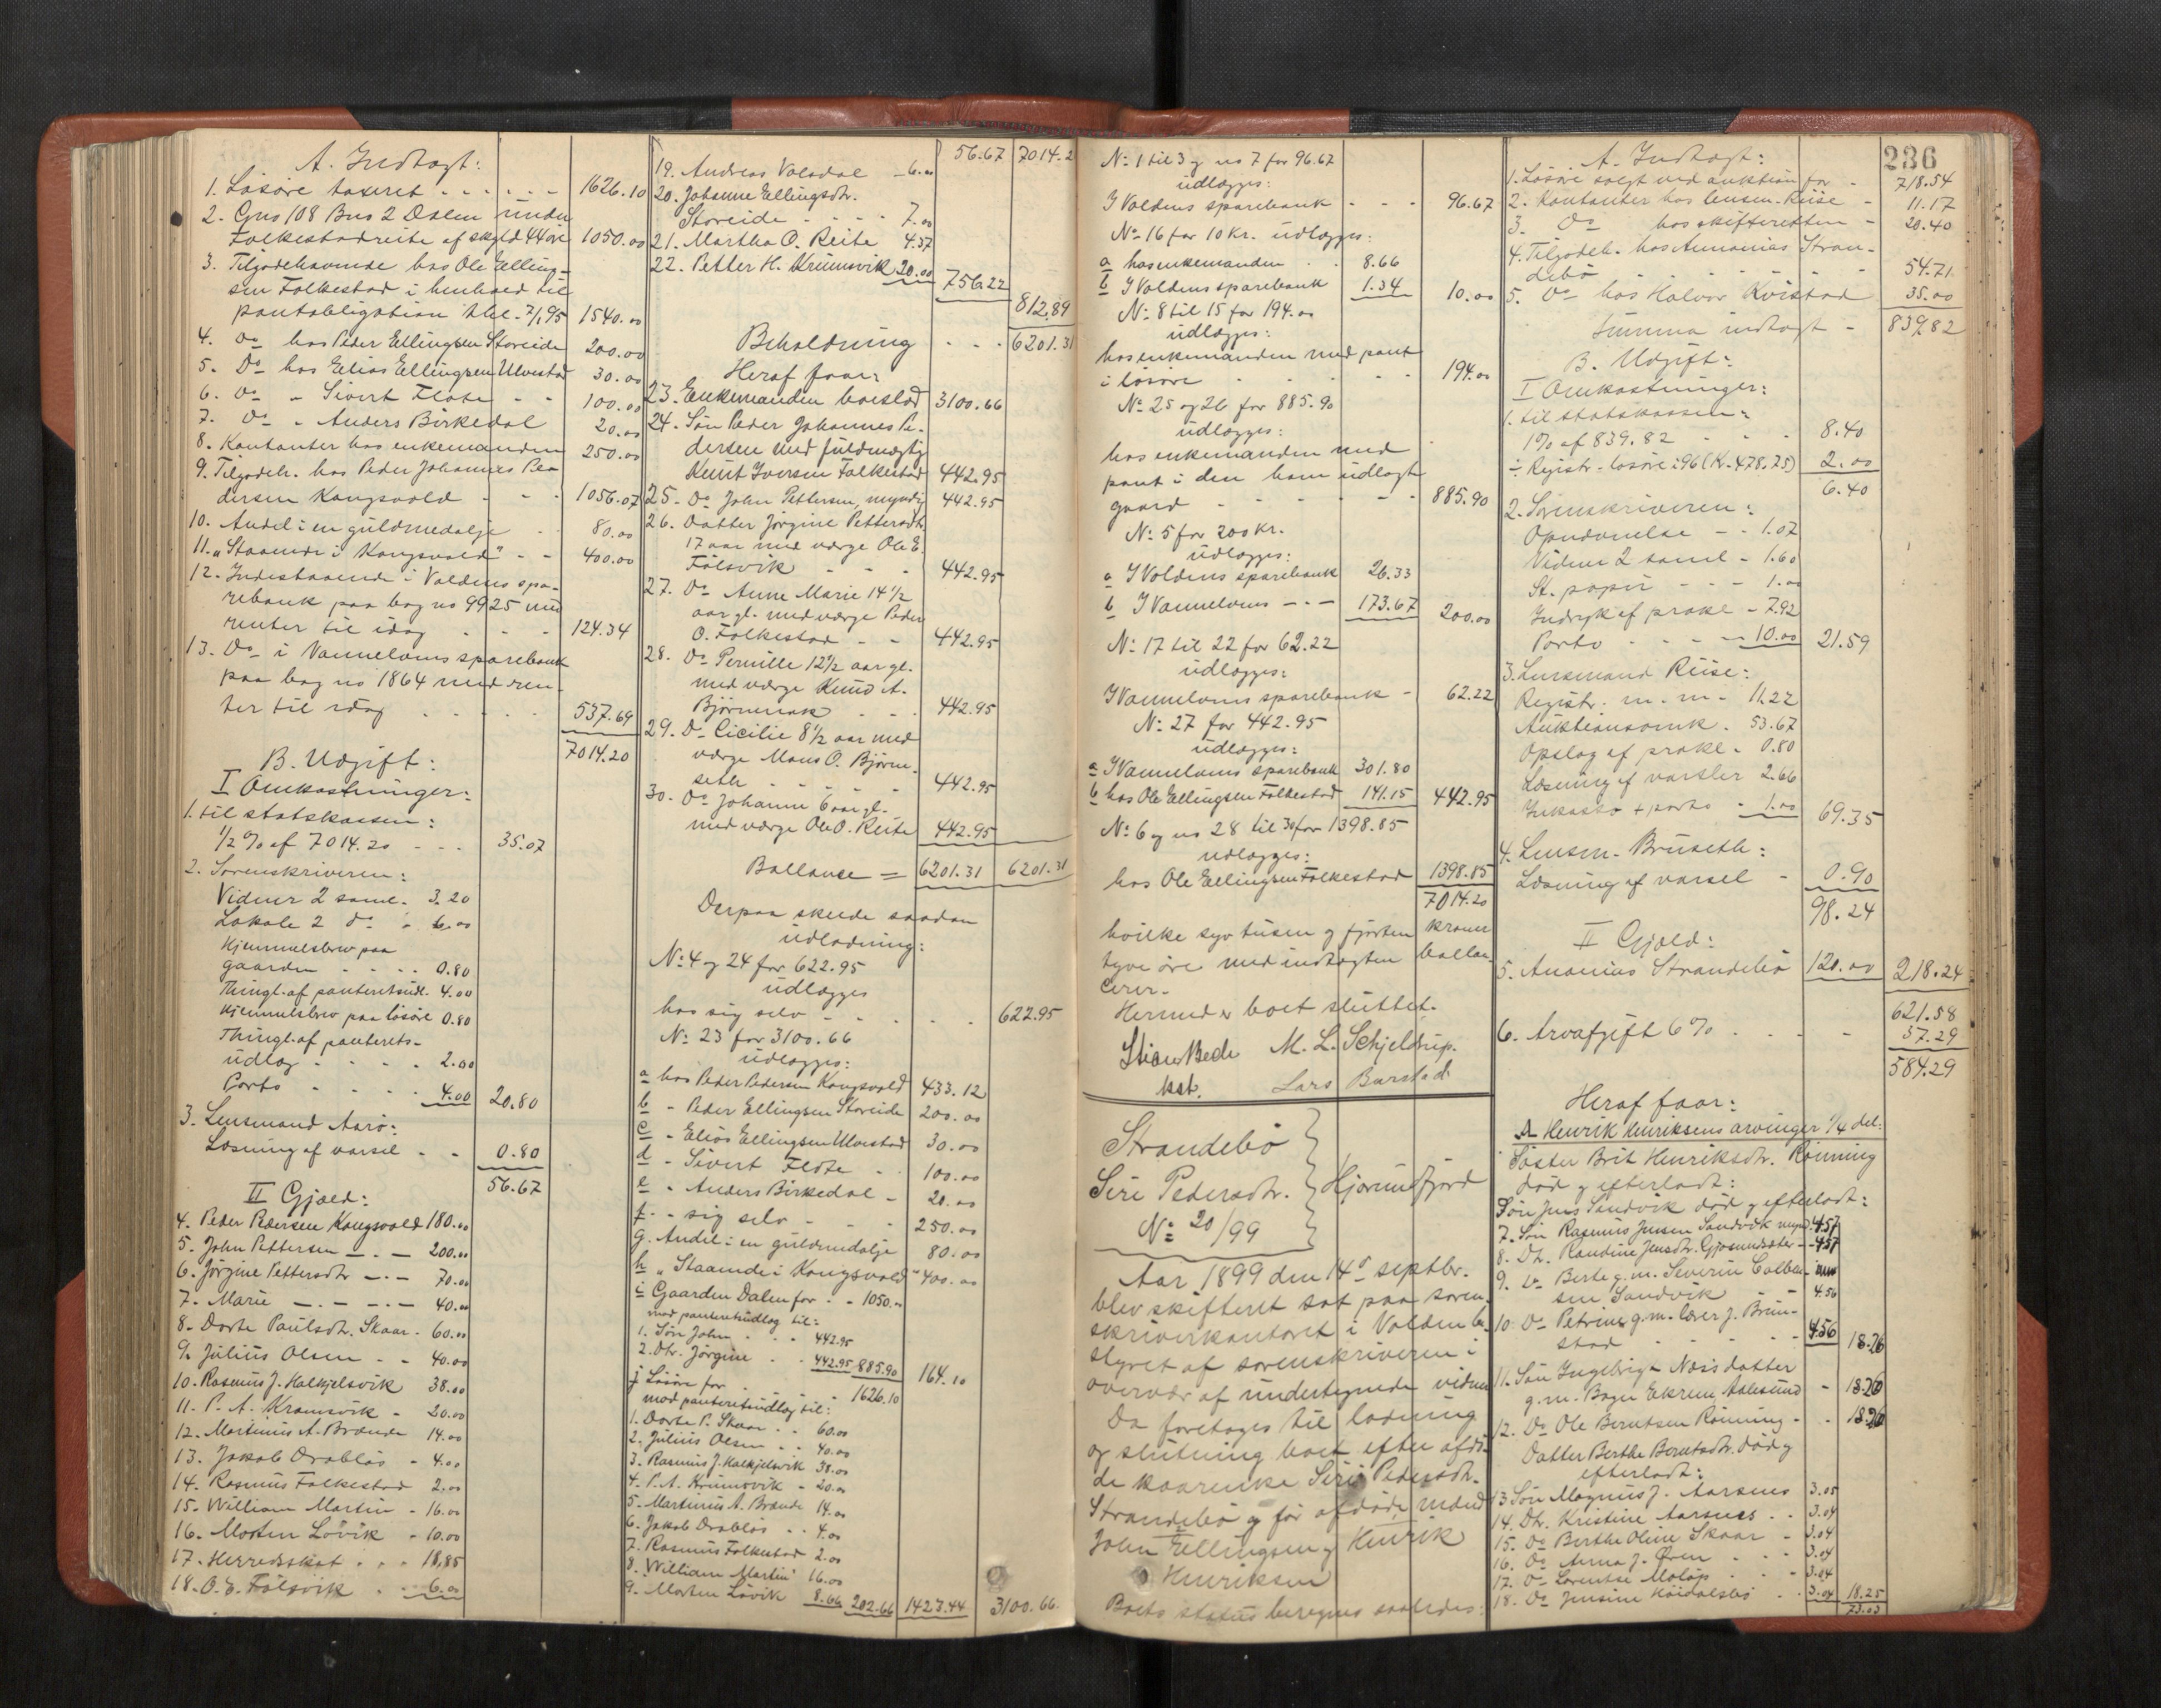 A. Indtægt:
1. Løsøre taxeret - - - - - - 1626.10
2. Gno 108 Bno 2 Dalen under
Folkestadreite af skyld 44 øre 1050.00
3. Tilgodehavende hos Ole Elling-
sen Folkestad i henhold til
pantobligation thl. 7/1 95 1540.00
4. Do hos Peder Ellingsen Storeide 200.00
5. Do hos Elias Ellingsen Ulvestad 30.00
6. Do " Sivert Fløte - - 100.00
7. Do " Anders Birkedal 20.00
8. Kontanter hos enkemanden 250.00
9. Tilgodeh. hos Peder Johannes Pe-
dersen Kongsvold - - - 1056.07
10. Andel i en guldmedalje - - 80.00
11. "Staaende i Kongsvold" - - 400.00
12. Indestaaende i Voldens spa-
rebank paa bog no 9925 med
renter til idag - - - 124.34
13. Do i Vannelvens sparebank
paa bog no 1864 med ren-
ter til idag . . . . . 537.69
7014.20
B. Udgift:
I Omkostninger:
1. til statskassen:
1/2 % af 7014.20 - - - 35.07
2. Sorenskriveren:
Vidner 2 saml. 3.20
Lokale 2 do " 6.00
Hjemmelsbrev paa
gaarden - - - . 0.80
Thingl. af panteretsudl. 4.00
Hjemmelsbrev paa løsøre 0.80
Thingl. af panterets-
udlæg - - - . 2.00
Porto - - - . 4.00 20.80
3. Lensmand Aarø:
Læsning af varsel - - 0.80
56.67
II Gjæld:
4. Peder Pedersen Kongsvold 180.00
5. John Pettersen — . — 200.00
6. Jørgine Pettersdtr — . — 70.00
7. Marie — . — — . — 40.00
8. Dorte Paulsdtr. Skaar - 60.00
9. Julius Olsen - - 40.00
10. Rasmus J. Halkjelsvik 38.00
11. P. A. Kromsvik - 20.00
12. Martinus A. Brænde 14.00
13. Jakob Drabløs - 4.00
14. Rasmus Folkestad 2.00
15. William Martin - 16.00
16. Morten Løvik - 10.00
17. Herredsskat . . . 18.85
18. O. E. Følsvik . . . 6.00
56.67 7014.2
19. Andreas Valsdal - 6.00
20. Johanne Ellingsdtr.
Storeide - - - - 7.00
21. Martha O. Reite 4.37
22. Petter H. Krumsvik 20.00 756.22
812.89
Beholdning . . . 6201.31
Heraf faar:
23. Enkemanden boeslod 3100.66
24. Søn Peder Johannes Pe-
dersen med fuldmægtig
Knut Iversen Folkestad 442.95
25. Do John Pettersen, myndig 442.95
26. Datter Jørgine Pettersdtr.
17 aar med værge Ole E.
Følsvik - - - 442.95
27. Do Anne Marie 14 1/2
aar gl. med værge Peder
O. Folkestad - - 442.95
28. Do Pernille 12 1/2 aar gl.
med værge Knud A.
Bjørneaak - - - 442.95
29. Do Cicilie 8 1/2 aar med
værge Mons O. Bjørne-
seth - - - - - 442.95
30. Do Johanne 6 aar gl.
med værge Ole O. Reite 442.95
Ballance = 6201.31 6201.31
Derpaa skede saadan
udlodning:
No 4 og 24 for 622.95
udlægges
hos sig selv - - . . . . 622.95
No 23 for 3100.66
udlægges:
a hos Peder Pedersen Kongsvold 433.12
b - Peder Ellingsen Storeide 200.00
c - Elias Ellingsen Ulvestad 30.00
d - Sivert Fløte - - 100.00
e - Anders Birkedal - 20.00
f - sig selv - - - 250.00
g. Andel i en guldmedalje 80.00
h "Staaende i Kongsvold" 400.00
i Gaarden Dalen for . - 1050.00
mod panteretsudlæg til:
1. Søn John . . . 442.95
2. Dtr. Jørgine . . 442.95 885.90 164.10
j Løsøre for . . . . 1626.10
mod panteretsudlæg til:
1. Dorte P. Skaar . . 60.00
2. Julius Olsen . . 40.00
3. Rasmus J. Halkjelsvik 38.00
4. P. A. Krumsvik - 20.00
5. Martinus A. Brænde 14.00
6. Jakob Drabløs . . 4.00
7. Rasmus Folkestad 2.00
8. William Martin 16.00
9. Morten Løvik 8.66 202.66 1423.44 3100.66.
No 1 til 3 og no 7 for 96.67
udlægges:
I Voldens sparebank - - - 96.67
No 16 for 10 kr. udlægges:
a hos enkemanden . . 8.66
b I Voldens sparebank 1.34 10.00
No 8 til 15 for 194.00
udlægges:
hos enkemanden med pant
i løsøre - - - - - 194.00
No 25 og 26 for 885.90
udlægges:
hos enkemanden med
pant i den ham udlagte
gaard - - - - - 885.90
No 5 for 200 kr.
udlægges:
a I Voldens sparebank 26.33
b I Vannelvens - . — 173.67 200.00
No 17 til 22 for 62.22
udlægges:
I Vannelvens sparebank - 62.22
No 27 for 442.95
udlægges:
a I Vannelvens sparebank 301.80
b hos Ole Ellingsen Folkestad 141.15 442.95
No 6 og no 28 til 30 for 1398.85
udlægges:
hos Ole Ellingsen Folkestad 1398.85
7014.20
hvilke syv tusen og fjorten kroner
tyve øre med indtægten ballan-
cerer.
Hermed er boet sluttet.
Stian Bech M. L. Schjeldrup.
kst. Lars Barstad
Strandebø
Siri Pedersdtr. Hjørundfjord
No 20/99
Aar 1899 den 14de septbr.
blev skifteret sat paa soren-
skriverkontoret i Volden be-
styret af sorenskriveren i
overvær af undertegnede vidner
Da foretages til lodning
og slutning boet efter afdø-
de kaarenke Siri Pedersdtr.
Strandebø og før afdøde mænd
John Ellingsen og Henrik
Henriksen
Boets status beregnes saaledes:
236
A. Indtægt:
1. Løsøre solgt ved auktion for - 718.54
2. Kontanter hos lensm. Riise - 11.17
3. Do hos skifteretten - 20.40
4. Tilgodeh. hos Annanias Stran-
debø - - - - - 54.71
5. Do hos Halvor Kvistad 35.00
Summa indtægt - 839.82
B. Udgift:
I Omkostninger:
1. til statskassen:
1 % af 839.82 - - - 8.40
÷ Registr. løsøre i 96 (Kr. 478.75) 2.00
6.40
2. Sorenskriveren:
Opnævnelse - - 1.07
Vidner 2 saml - 1.60
St. papir - - - 1.00
Indryk af prokl - 7.92
Porto - - - - 10.00 21.59
3. Lensmand Riise:
Registr. m. m. - 11.22
Auktionsomk. 53.67
Opslag af prokl. - 0.80
Læsning af varsler 2.66
Inkasso + porto - 1.00 69.35
4. Lensm. Bruseth:
Læsning af varsel - 0.90
98.24
II Gjæld:
5. Ananias Strandebø 120.00 218.24
621.58
6. Arvafgift 6 % . . - - 37.29
584.29
Heraf faar:
A Henrik Henriksens arvinger 1/4 del:
Søster Brit Henriksdtr. Rønning
død og efterladt:
Søn Jens Sandvik død og efterladt:
7. Søn Rasmus Jensen Sandvik mynd. 4.57
8. Dtr. Randine Jensdtr. Gjøsundsæter - 4.57
9. Do Berte g. m. Severin Colben-
sen Sandvik - - 4.56
10. Do Petrine g. m. lærer J. Brun-
stad - - - - - 4.56 18.26
11. Søn Ingebrigts Næss datter
g. m. Roger Ekrem Aalesund - 18.26
12. Do Ole Berntsen Rønning - - 18.26
Datter Berthe Berntsdtr. død og
efterladt:
13. Søn Magnus J. Aarsnes 3.05
14. Dtr. Kristine Aarsnes . . 3.04
15. Do Berthe Oline Skaar - 3.04
16. Do Anna J. Øren . . . 3.04
17. Do Lorentse Moløp . . 3.04
18. Do Jensine Høidalsbø . . 3.04 18.25
73.03